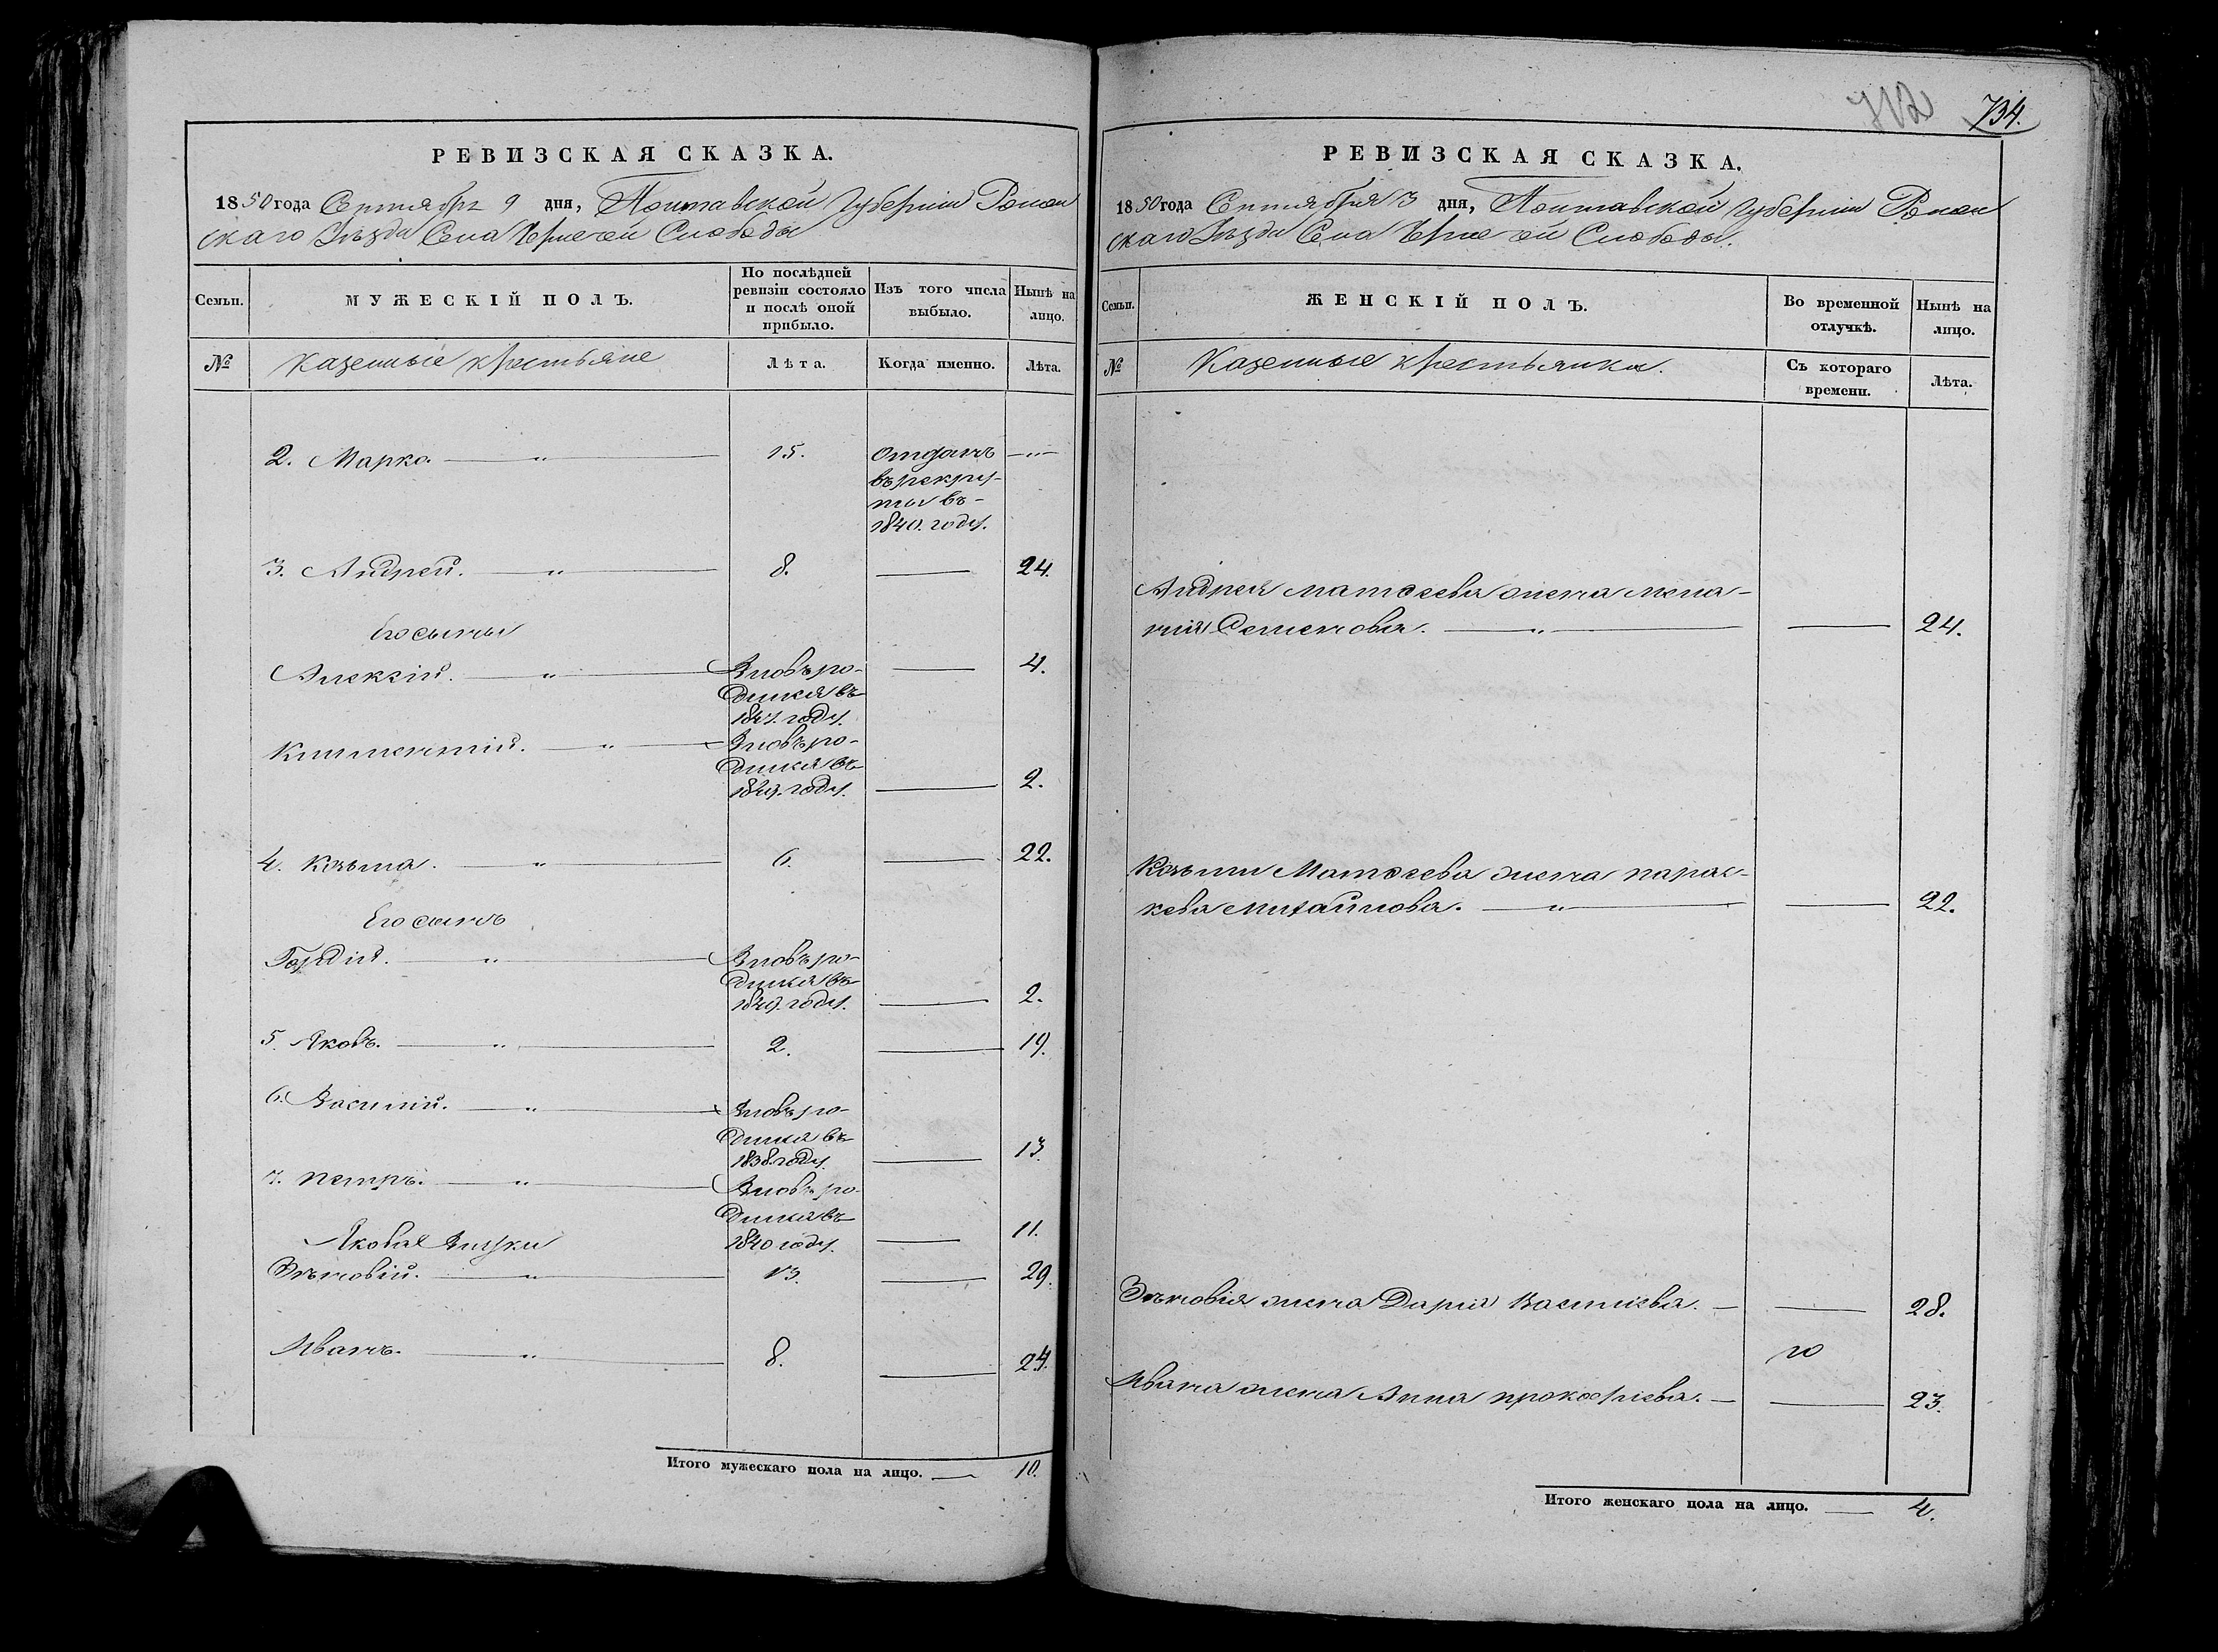 712 734.
РЕВИЗСКАЯ СКАЗКА.
1850 года Сентября 9 дня, Полтавской Губерніи Ромен
скаго Уѣзда Села Чернечей Слободы
Семьи.
МУЖЕСКІЙ ПОЛЪ.
По послѣдней ревизіи состояло и послѣ оной прибыло.
Изъ того числа выбыло.
Нынѣ на лицо.
№
Казенные крестьяне
Лѣта.
Когда именно.
Лѣта.
2. Марко. — " — 15. отданъ — " —
въ рекру-
ты въ -
1840. году.
3. Андрей. — " — 8. — 24.
Его сыны
Алексій. — " — Вновь ро- — 4.
дился въ
1847. году.
Климентій. — " — Вновь ро-
дился въ
1849. году. — 2.
4. Козьма. — " — 6. — 22.
Его сынъ
Гордій. — " — Вновь ро-
дился въ
1849. году. — 2.
5. Яковъ. — " — 2. — 19.
6. Василій. — " — Вновь ро-
дился въ — 13.
1838. году.
7. Петръ. — " — Вновь ро-
дился въ
1840 году. — 11.
Якова Внуки
Зѣновій. — " — 13. — 29.
Иванъ. — " — 8. — 24.
Итого мужескаго пола на лицо. — 10.
РЕВИЗСКАЯ СКАЗКА.
1850 года Сентября 13 дня, Полтавской Губерніи Ромен
скаго Уѣзда Села Чернечей Слободы.
Семьи.
ЖЕНСКІЙ ПОЛЪ.
Во временной отлучкѣ.
Нынѣ на лицо.
№
Казенные крестьянки.
Съ котораго времени.
Лѣта.
Андрея Матѳеева жена Мела-
нія Семенова. — " — — 24.
Козьмы Матѳеева жена Парас-
кева Михайлова. — " — — 22.
Зѣновія жена Дарія Васильева. — — 28.
Ивана жена Анна Прокофіева. — — 23.
Итого женскаго пола на лицо. — 4.